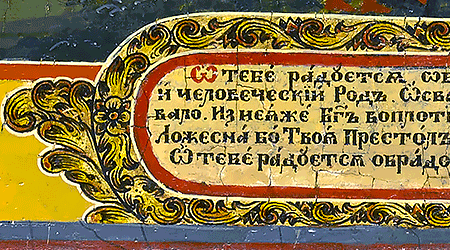 Ѡ тебѣ радуется ѡб
и человеческїй Родъ. Ѡсвѧ
вало. Из неѧже Бг҃ъ воплоти
Ложесна бо Твоѧ Престолъ
Ѡ тебѣ радуется обрадо